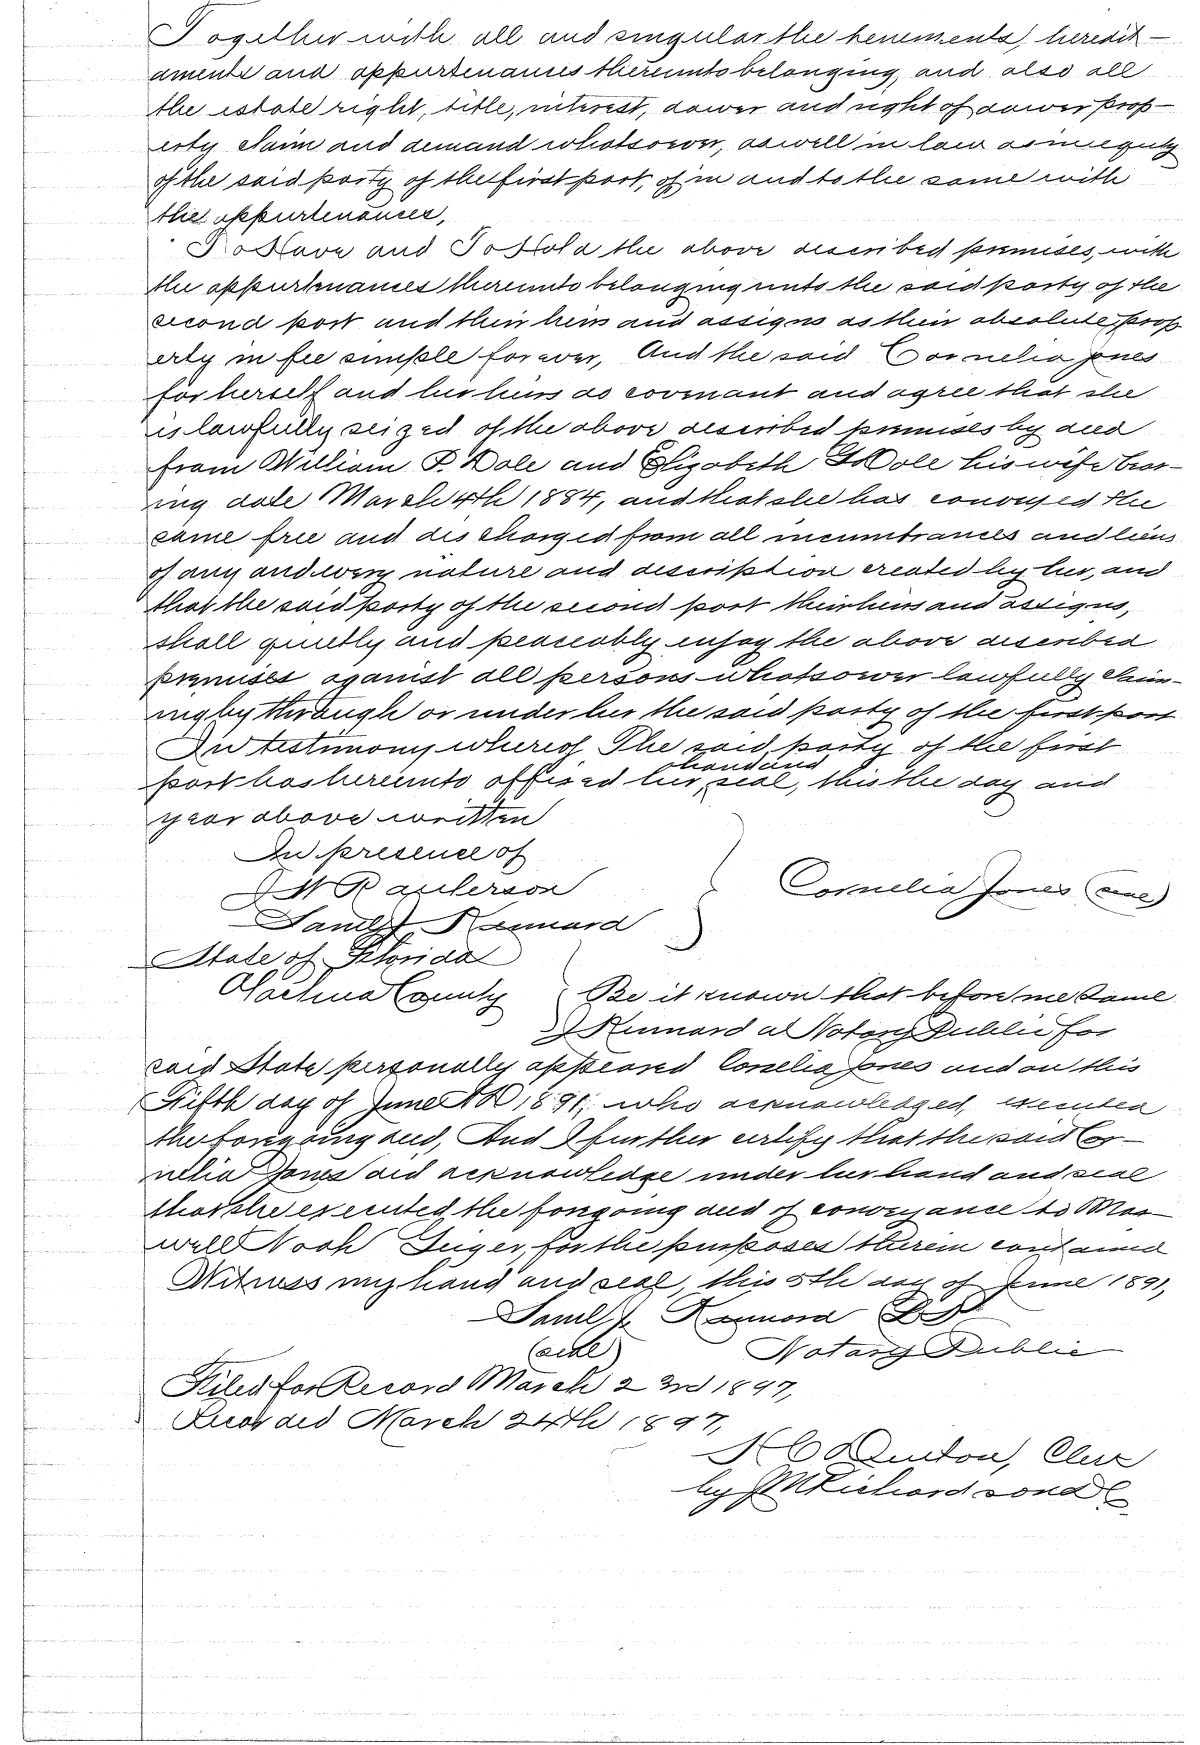 Together with all and singular the tenements, heredit-
aments and appurtenances thereunto belonging, and also all
the estate right, title, interest, dower and right of dower prop-
erty claim and demand whatsoever, as well in law as in equity
of the said party of the first part, of in and to the same with
the appurtenances,
To Have and To Hold the above described premises, with
the appurtenances thereunto belonging unto the said party of the
second part and their heirs and assigns as their absolute prop
erty in fee simple forever, And the said Cornelia Jones
for herself and her heirs do covenant and agree that she
is lawfully seized of the above described premises by deed
from William P. Dole and Elizabeth Dole his wife bear-
ing date March 4th 1884, and that she has conveyed the
same free and discharged from all incumbrances and liens
of any and every nature and description created by her, and
that the said party of the second part their heirs and assigns,
shall quietly and peaceably enjoy the above described
premises against all persons whatsoever lawfully claim-
ing by through or under her the said party of the first part
In testimony whereof The said party of the first
hand and
part has hereunto affixed her seal, this the day and
year above written
In presence of
Cornelia Jones (seal)
Saml J Kennard
State of Florida
Alachua County Be it known that before me Saml
J Kennard a Notary Public for
said State personally appeared Cornelia Jones and on this
Fifth day of June AD 1891, who acknowledged, executed
the foregoing deed, And I further certify that the said Cor-
nelia Jones did acknowledge under her hand and seal
that she executed the foregoing deed of conveyance to Max-
well Noah Geiger, for the purposes therein contained
Witness my hand and seal, this 5th day of June 1891,
Saml J. Kennard
(seal) Notary Public
Filed for Record March 23rd 1897,
Recorded March 24th 1897,
H C Denton, Clerk
by J M Richardson DC